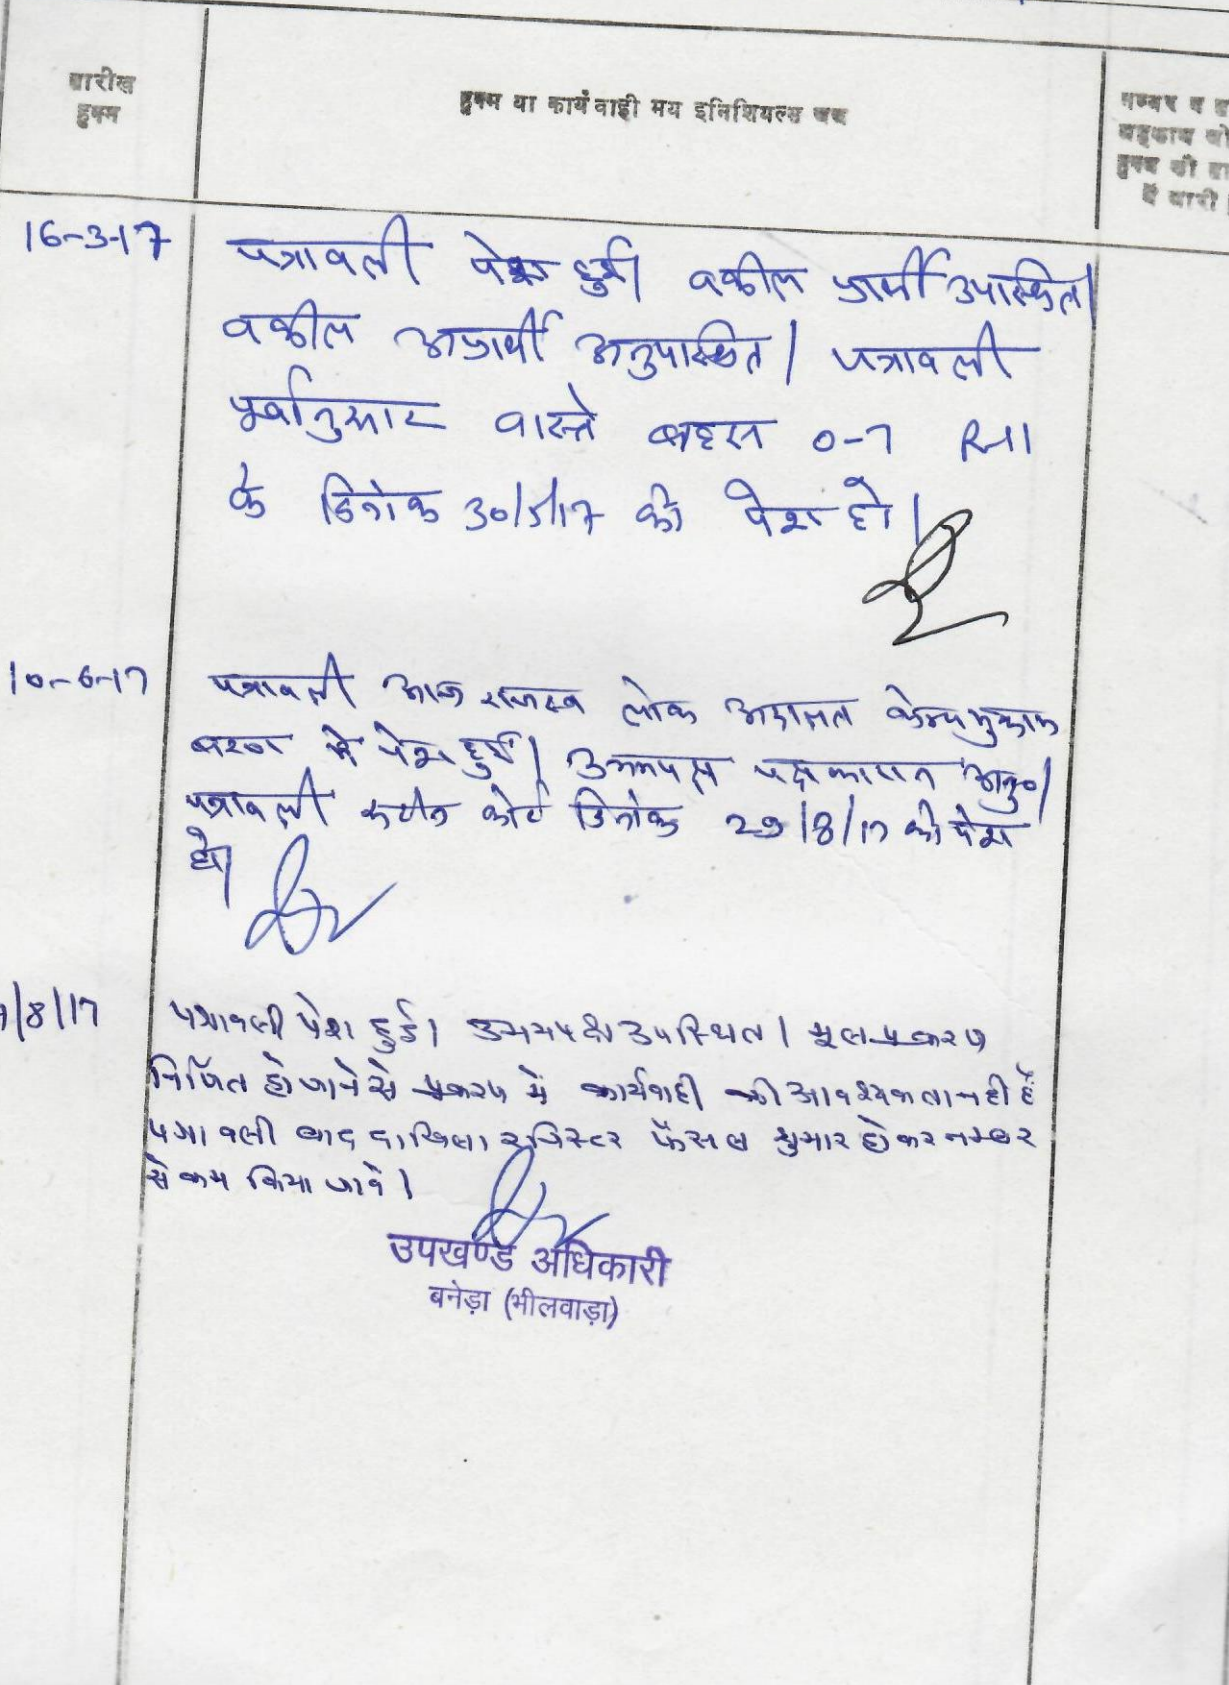 तारीख
हुक्म
हुक्म या कार्यवाही मय इनिशियल्स जज
नम्बर व
अहकाम जो
हुक्म की
में जारी
16-3-17
पत्रावली पेश हुई। वकील प्रार्थी उपस्थित।
वकील अप्रार्थी अनुपस्थित। पत्रावली
पूर्वानुसार वास्ते बहस 0-7 R-11
के दिनांक 30/5/17 को पेश हो।
10-6-17
पत्रावली आज राजस्व लोक अदालत केम्प मुकाम
में पेश हुई। उभयपक्ष पक्षकारान अनु०।
पत्रावली रूटीन कोर्ट दिनांक 29/8/17 को पेश
हो।
/8/17
पत्रावली पेश हुई। उभयपक्ष उपस्थित। मूल प्रकरण
निर्णित हो जाने से प्रकरण में कार्यवाही की आवश्यकता नही है
पत्रावली बाद दाखिला रजिस्टर फैसल शुमार होकर नम्बर
से कम किया जावे।
उपखण्ड अधिकारी
बनेड़ा (भीलवाड़ा)